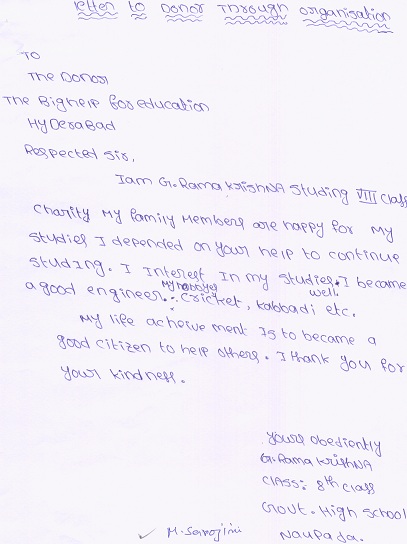 letter to Donor Through organisation
To
The Donor
The Bighelp for education
HyDerabad
Respected sir,
Iam G.Rama krishna studing VIII class
charity My family Members are happy for My
studies I depended on your help to continue
studing. I Interest In my studies. I became
a good engineer. My hobbyes cricket, kabbadi etc. well.
My life acheive ment Is to became a
good citizen to help others. I thank you for
your kindness.
yours obediently
G.Rama krishna
class: 8th class
Govt. High school
Naupada.
M. Sarojini